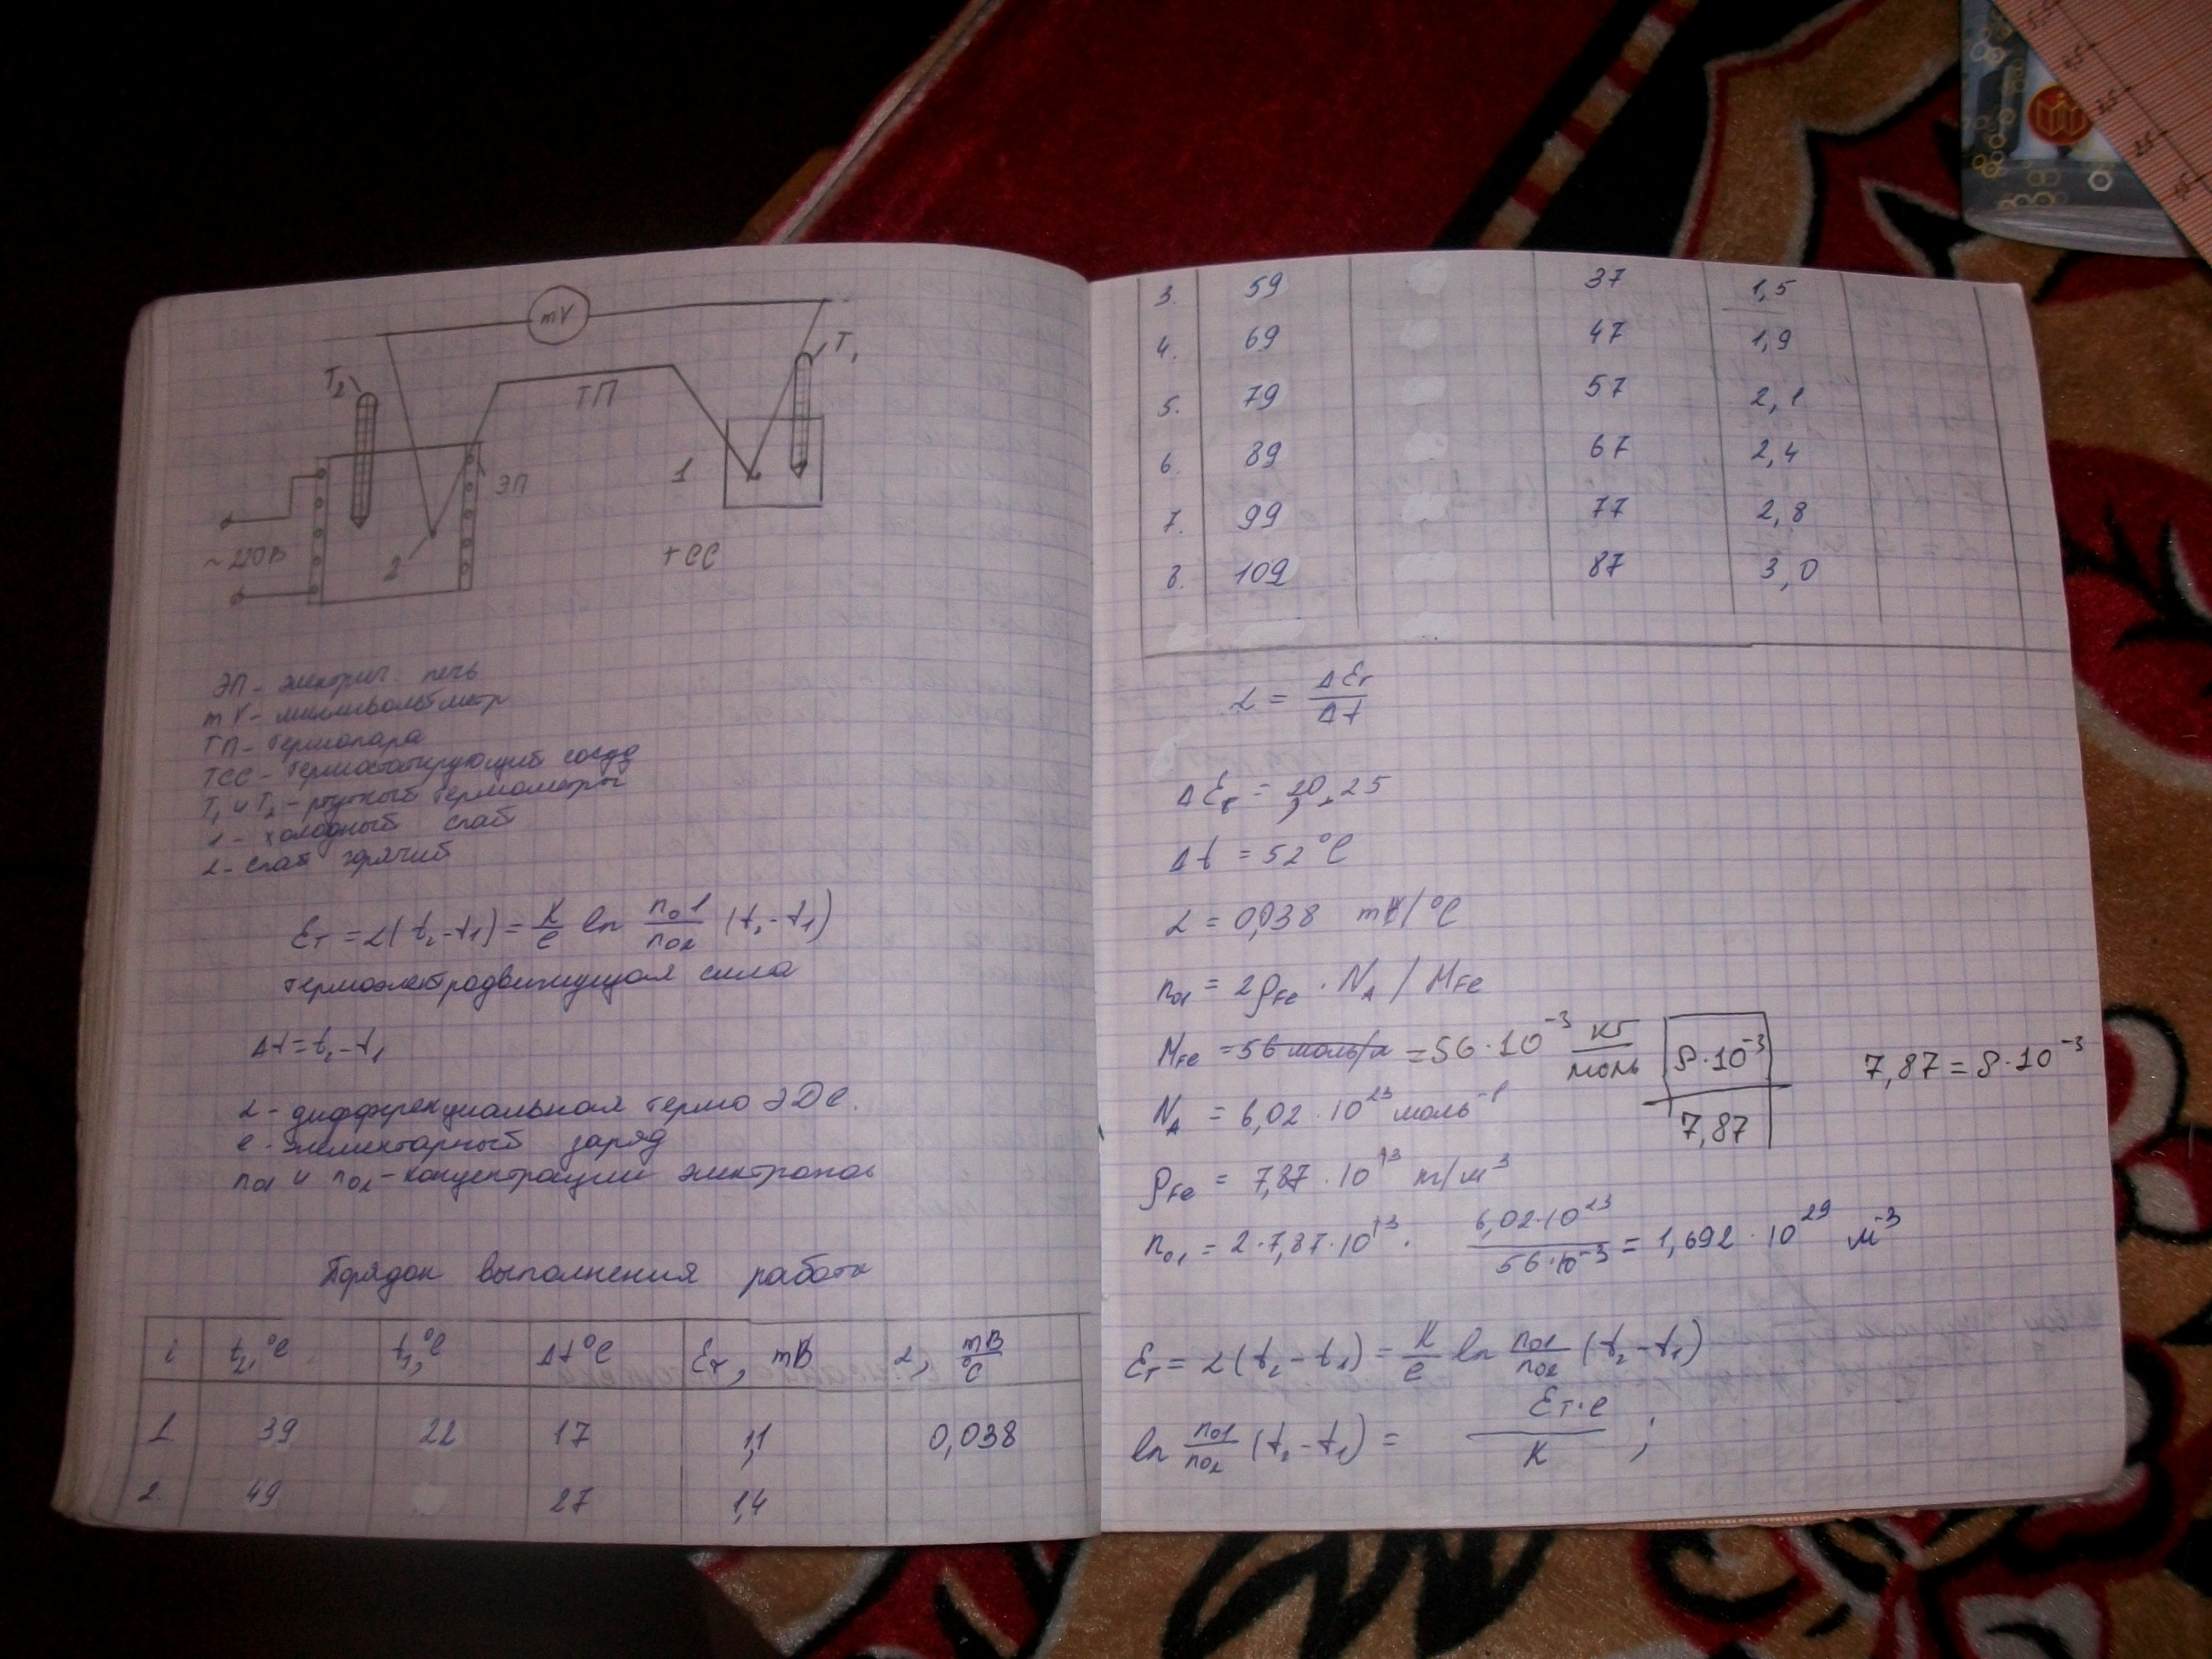 mV
T₂
T₁
ТП
ЭП
1
~220В
2
ТСС
ЭП - электрич. печь
mV - милливольтметр
ТП - термопара
ТСС - термостатирующий сосуд
T₁ и T₂ - ртутный термометры
1 - холодный спай
2 - спай горячий
Ɛт = α(t₂ - t₁) = K/e ln n₀1/n₀₂ (t₂ - t₁)
термоэлектродвижущая сила
Δt = t₂ - t₁
α - дифференциальная термо ЭДС.
e - элементарный заряд
n₀₁ и n₀₂ - концентрации электронов
Порядок выполнения работы
i t₂, °C t₁, °C Δt °C Ɛт, mB α, mB/°C
1 39 22 17 1,1 0,038
2. 49 27 1,4
3. 59 37 1,5
4. 69 47 1,9
5. 79 57 2,1
6. 89 67 2,4
7. 99 77 2,8
8. 109 87 3,0
α = ΔƐт/Δt
Δt = 52 °C
α = 0,038 mV/°C
n₀₁ = 2ρFe · NA / MFe
MFe = 56 моль/л = 56 · 10⁻³ кг/моль
ρ · 10⁻³
7,87
7,87 = ρ · 10⁻³
NA = 6,02 · 10²³ моль⁻¹
ρFe = 7,87 · 10³ кг/м³
n₀₁ = 2 · 7,87 · 10³ · 6,02 · 10²³/56 · 10⁻³ = 1,692 · 10²⁹ м⁻³
Ɛт = α (t₂ - t₁) = K/e ln n₀₁/n₀₂ (t₂ - t₁)
ln n₀₁/n₀₂ (t₂ - t₁) = Ɛт · e/K ;